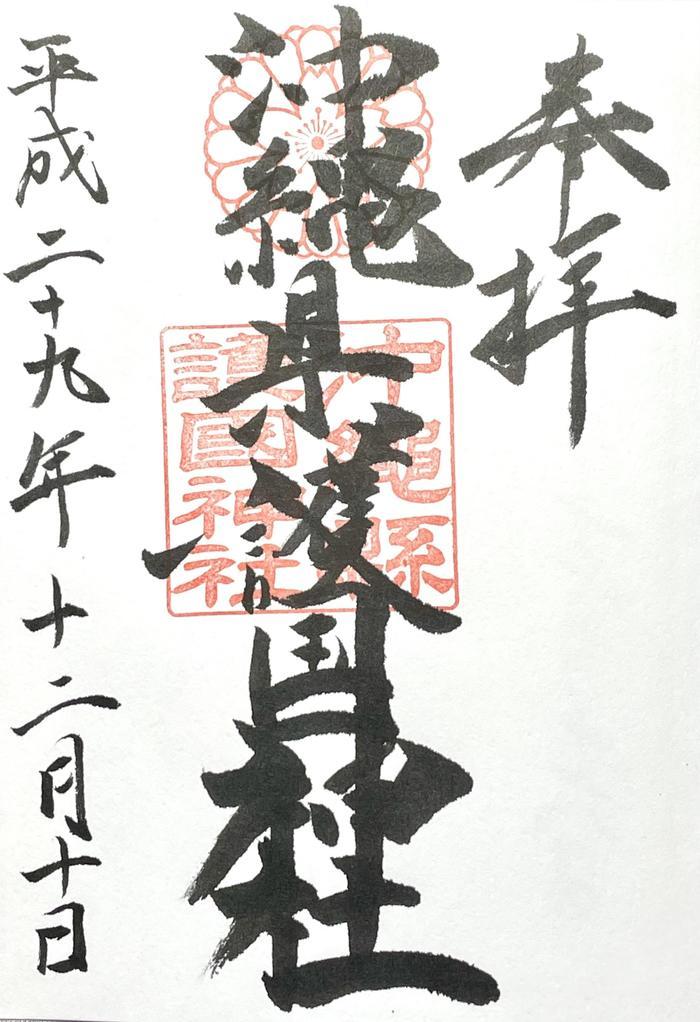 奉拝
沖縄県護国神社
沖縄縣
護國神社
平成二十九年十二月十日